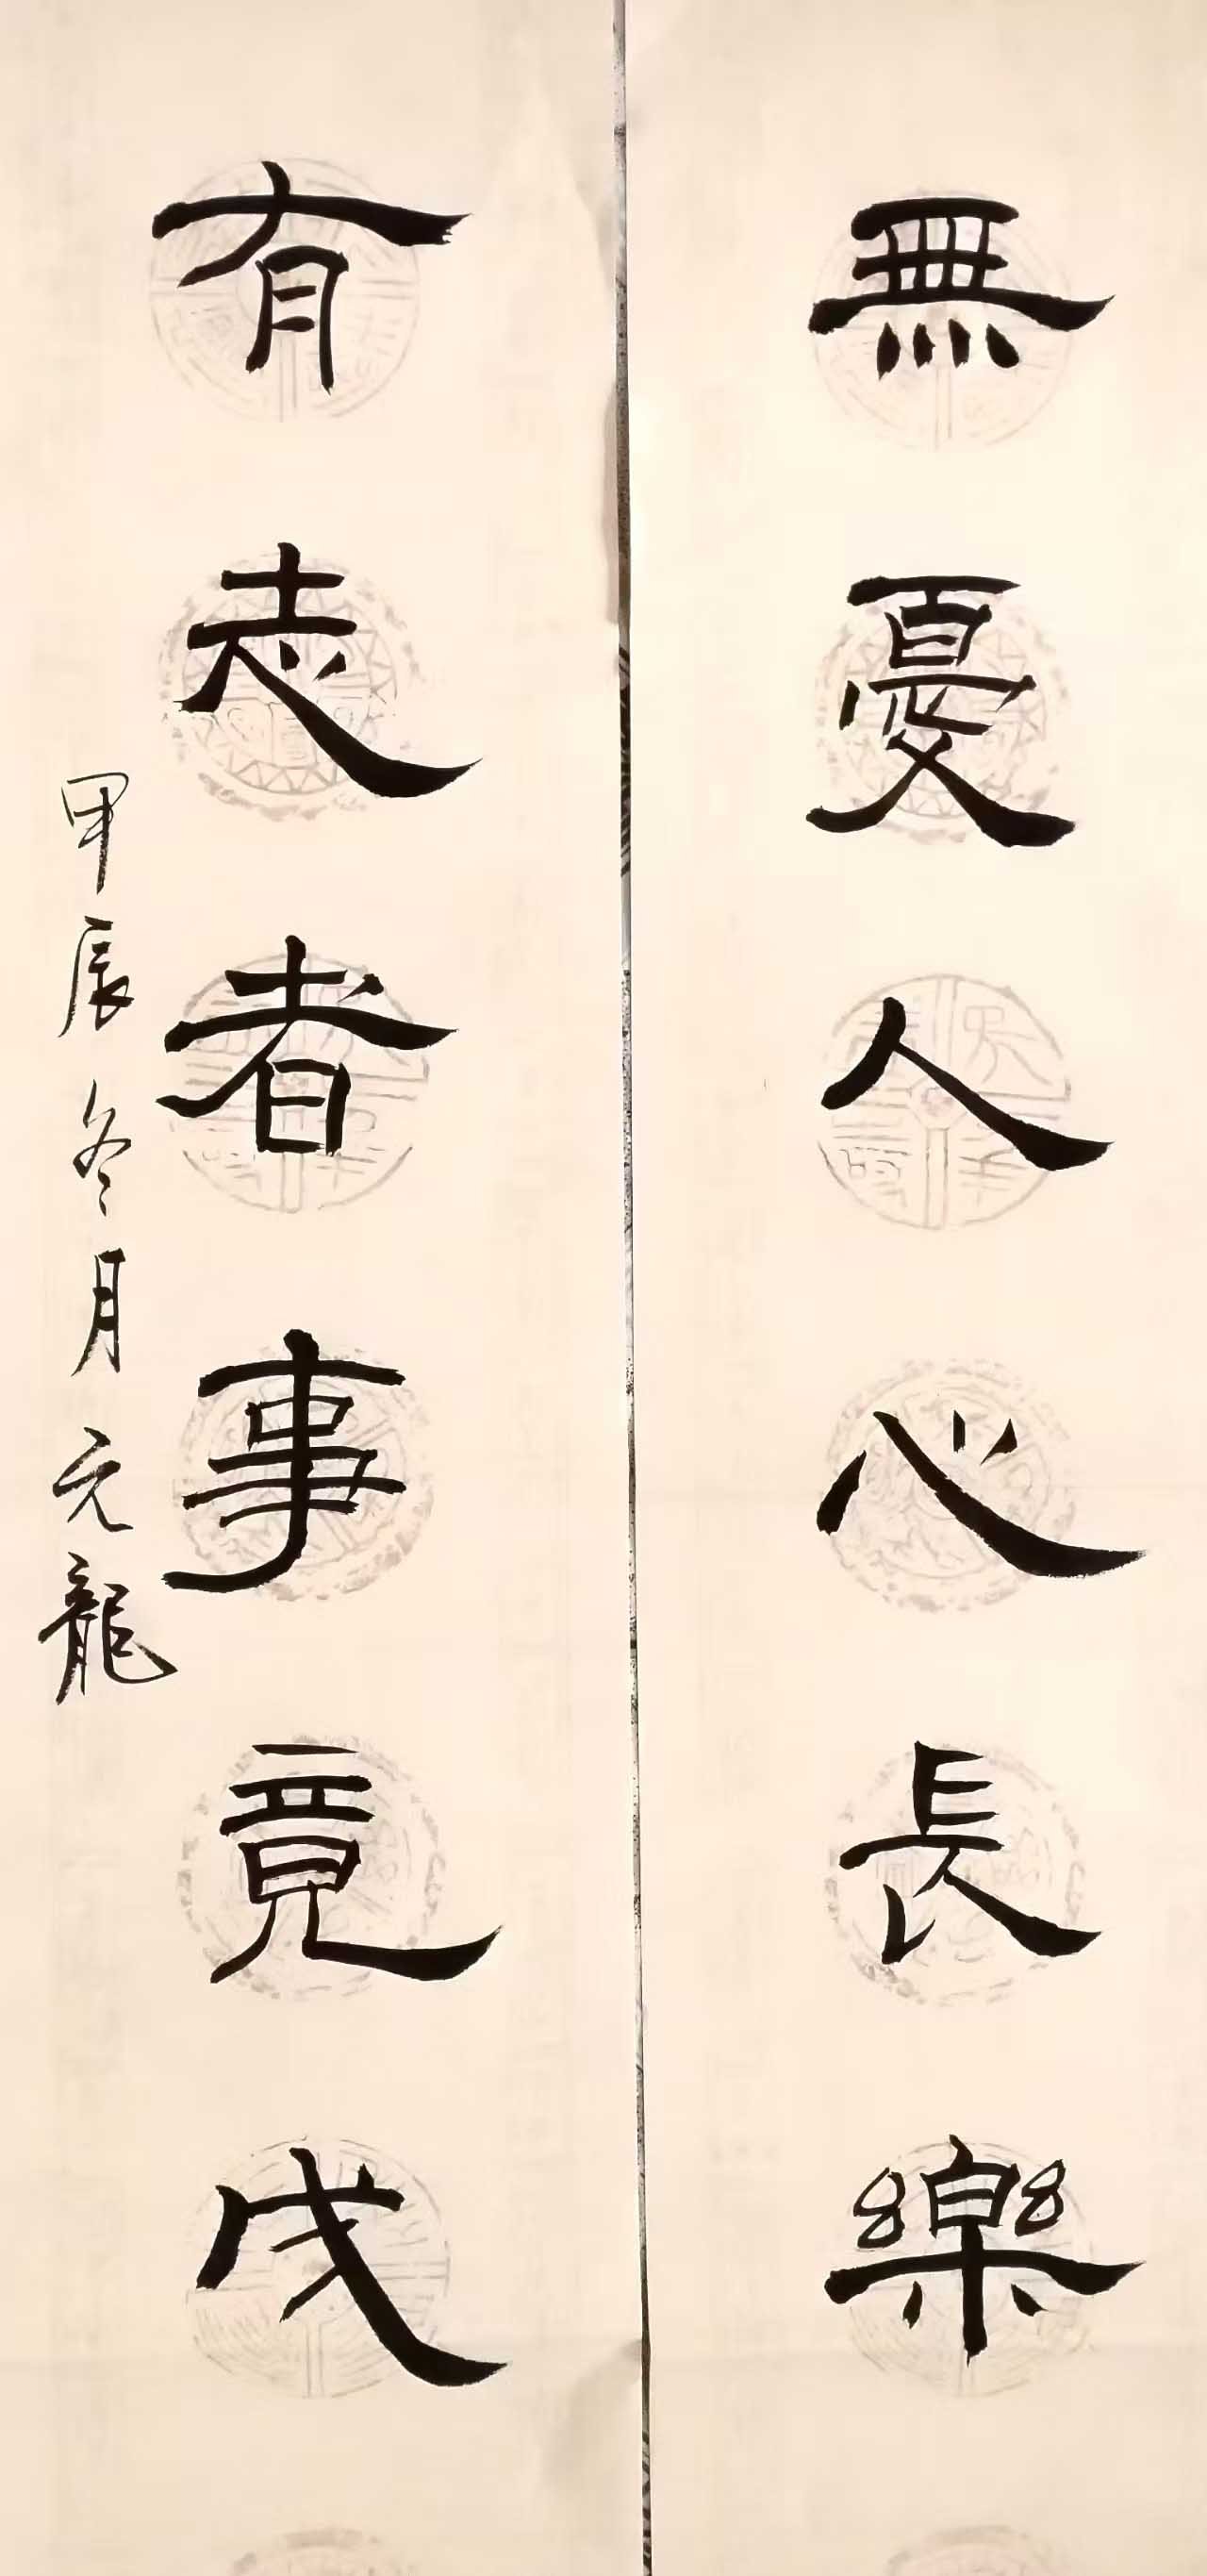 無憂人心長樂
有志者事竟成
甲辰冬月元龍